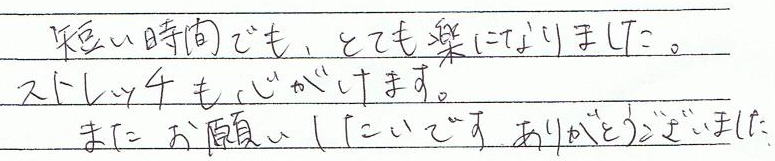 短い時間でも、とても楽になりました。
ストレッチも心がけます。
またお願いしたいです ありがとうございました